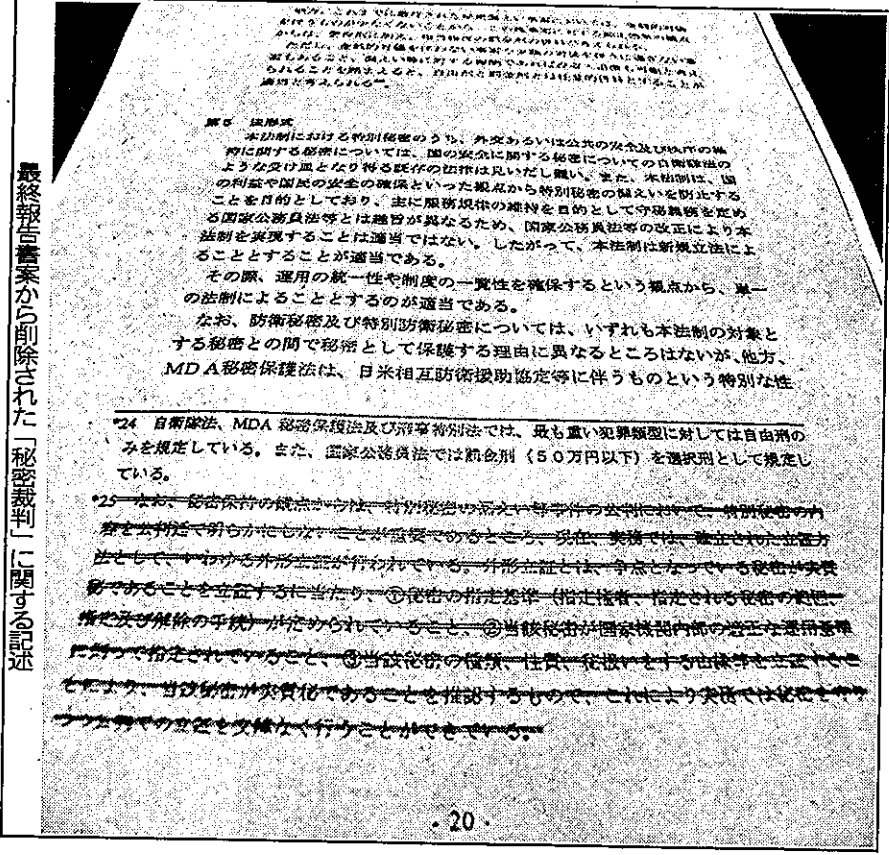 最終報告書案から削除された「秘密裁判」に関する記述
適当と考えられる
第5 法形式
本法制における特別秘密のうち、外交あるいは公共の安全及び秩序の維
持に関する秘密については、国の安全に関する秘密についての自衛隊法の
ような受け皿となり得る既存の法律は見いだし難い。また、本法制は、国
の利益や国民の安全の確保といった観点から特別秘密の漏えいを防止する
ことを目的としており、主に服務規律の維持を目的として守秘義務を定め
る国家公務員法等とは趣旨が異なるため、国家公務員法等の改正により本
法制を実現することは適当ではない。したがって、本法制は新規立法によ
ることとすることが適当である。
その際、運用の統一性や制度の一覧性を確保するという観点から、単一
の法制によることとするのが適当である。
なお、防衛秘密及び特別防衛秘密については、いずれも本法制の対象と
する秘密との間で秘密として保護する理由に異なるところはないが、他方、
MDA秘密保護法は、日米相互防衛援助協定等に伴うものという特別な性
*24 自衛隊法、MDA秘密保護法及び刑事特別法では、最も重い犯罪類型に対しては自由刑の
みを規定している。また、国家公務員法では罰金刑(50万円以下)を選択刑として規定し
ている。
*25 なお、秘密保持の観点からは、特別秘密の漏えい等事件の公判において、特別秘密の内
容を公判廷で明らかにしないことが重要であるところ、現在、実務では、確立された立証方
法として、いわゆる外形立証が行われている。外形立証とは、争点となっている秘密が実質
秘であることを立証するに当たり、①秘密の指定基準(指定権者、指定される秘密の範囲、
指定及び解除の手続)が定められていること、②当該秘密が国家機関内部の適正な運用基準
に則って指定されていること、③当該秘密の種類、性質、秘扱いをする由縁等を立証するこ
とにより、当該秘密が実質秘であることを推認するもので、これにより実務では秘密を守り
つつ公判での立証を支障なく行うことができている。
- 20 -